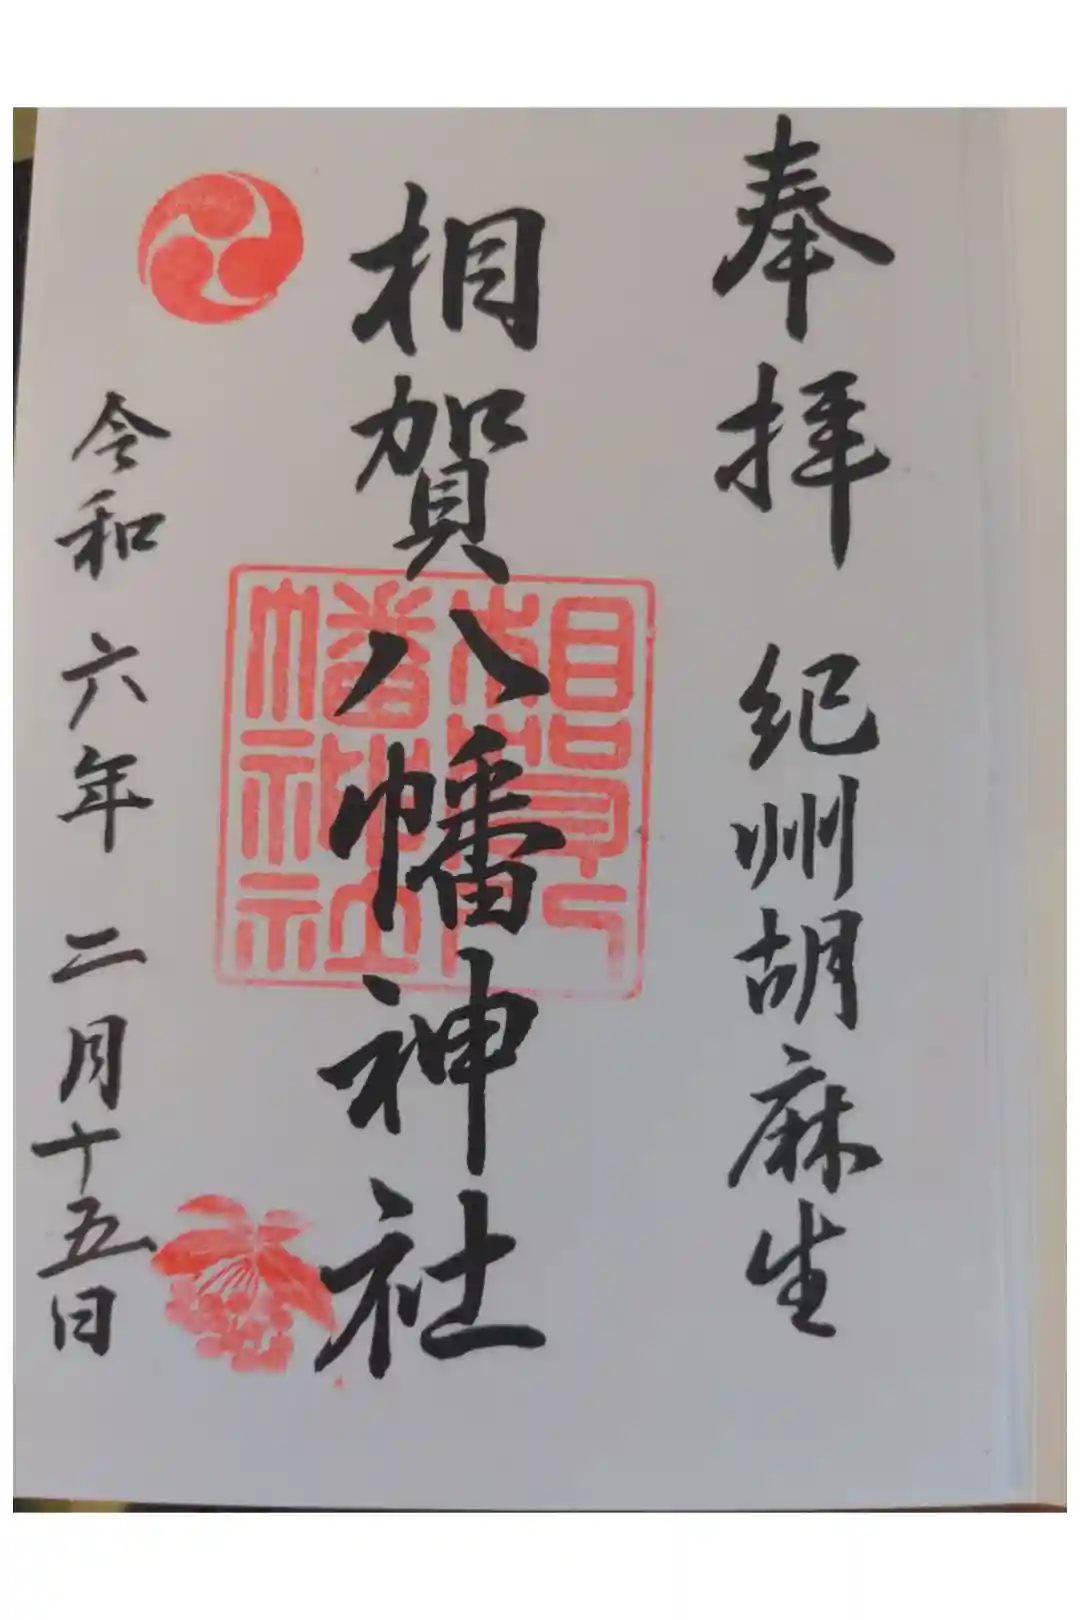 奉拝 紀州胡麻生
相賀八幡神社
相賀八幡神社
令和六年二月十五日